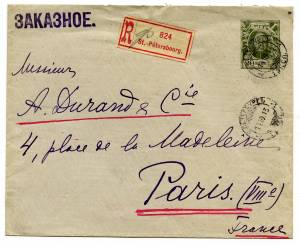 ЗАКАЗНОЕ.
R
824
St.-Pétersbourg.
Messieurs
A. Durand & Cie
4, place de la Madeleine
Paris. (VIIIe)
France